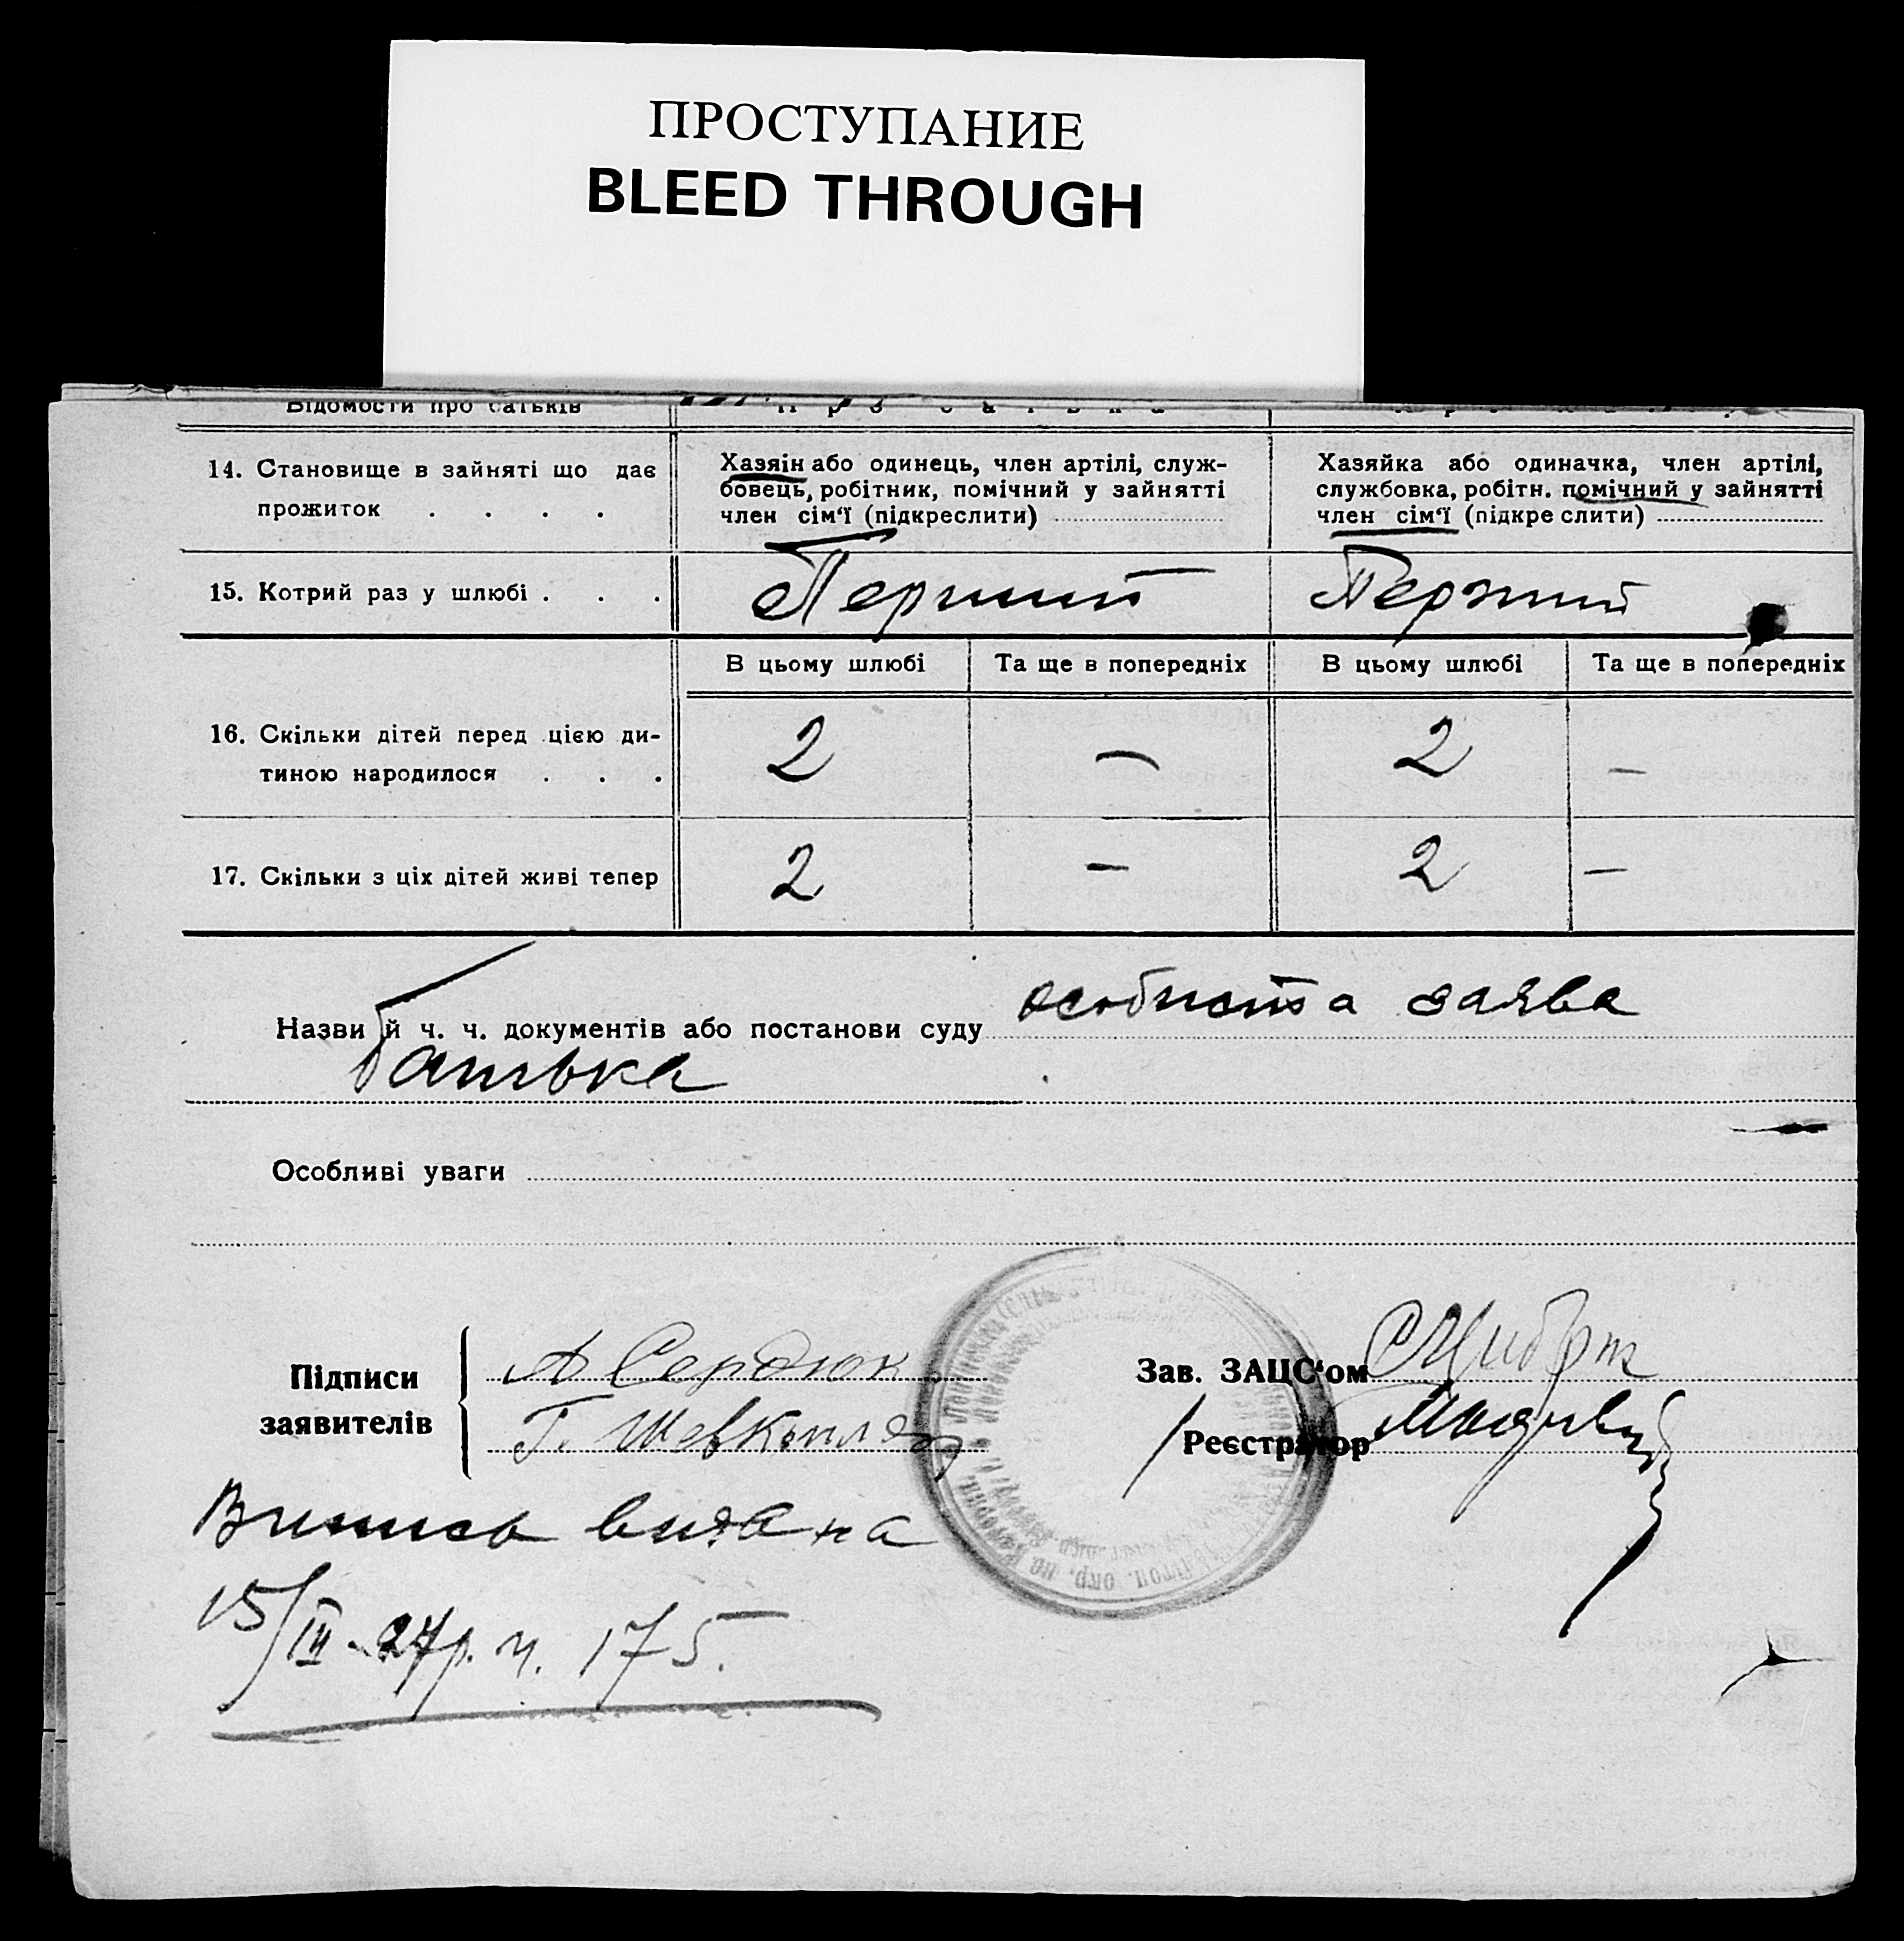 ПРОСТУПАНИЕ
BLEED THROUGH
Відомости про батьків
14. Становище в зайняті що дає прожиток . . . .
Хазяїн або одинець, член артілі, служ-
бовець, робітник, помічний у зайнятті
член сім'ї (підкреслити)
Хазяйка або одиначка, член артілі,
службовка, робітн. помічний у зайнятті
член сім'ї (підкреслити)
15. Котрий раз у шлюбі . . . Перший Перший
В цьому шлюбі Та ще в попередніх В цьому шлюбі Та ще в попередніх
16. Скільки дітей перед цією ди-
тиною народилося . . . 2 — 2 —
17. Скільки з ціх дітей живі тепер 2 — 2 —
Назви й ч. ч. документів або постанови суду особиста заява
батька
Особливі уваги
Підписи
заявителів
А Сердюк
Г. Шевкопляс
Зав. ЗАЦС'ом
Реєстратор
Випись видана
15/III-27р. ч. 175.